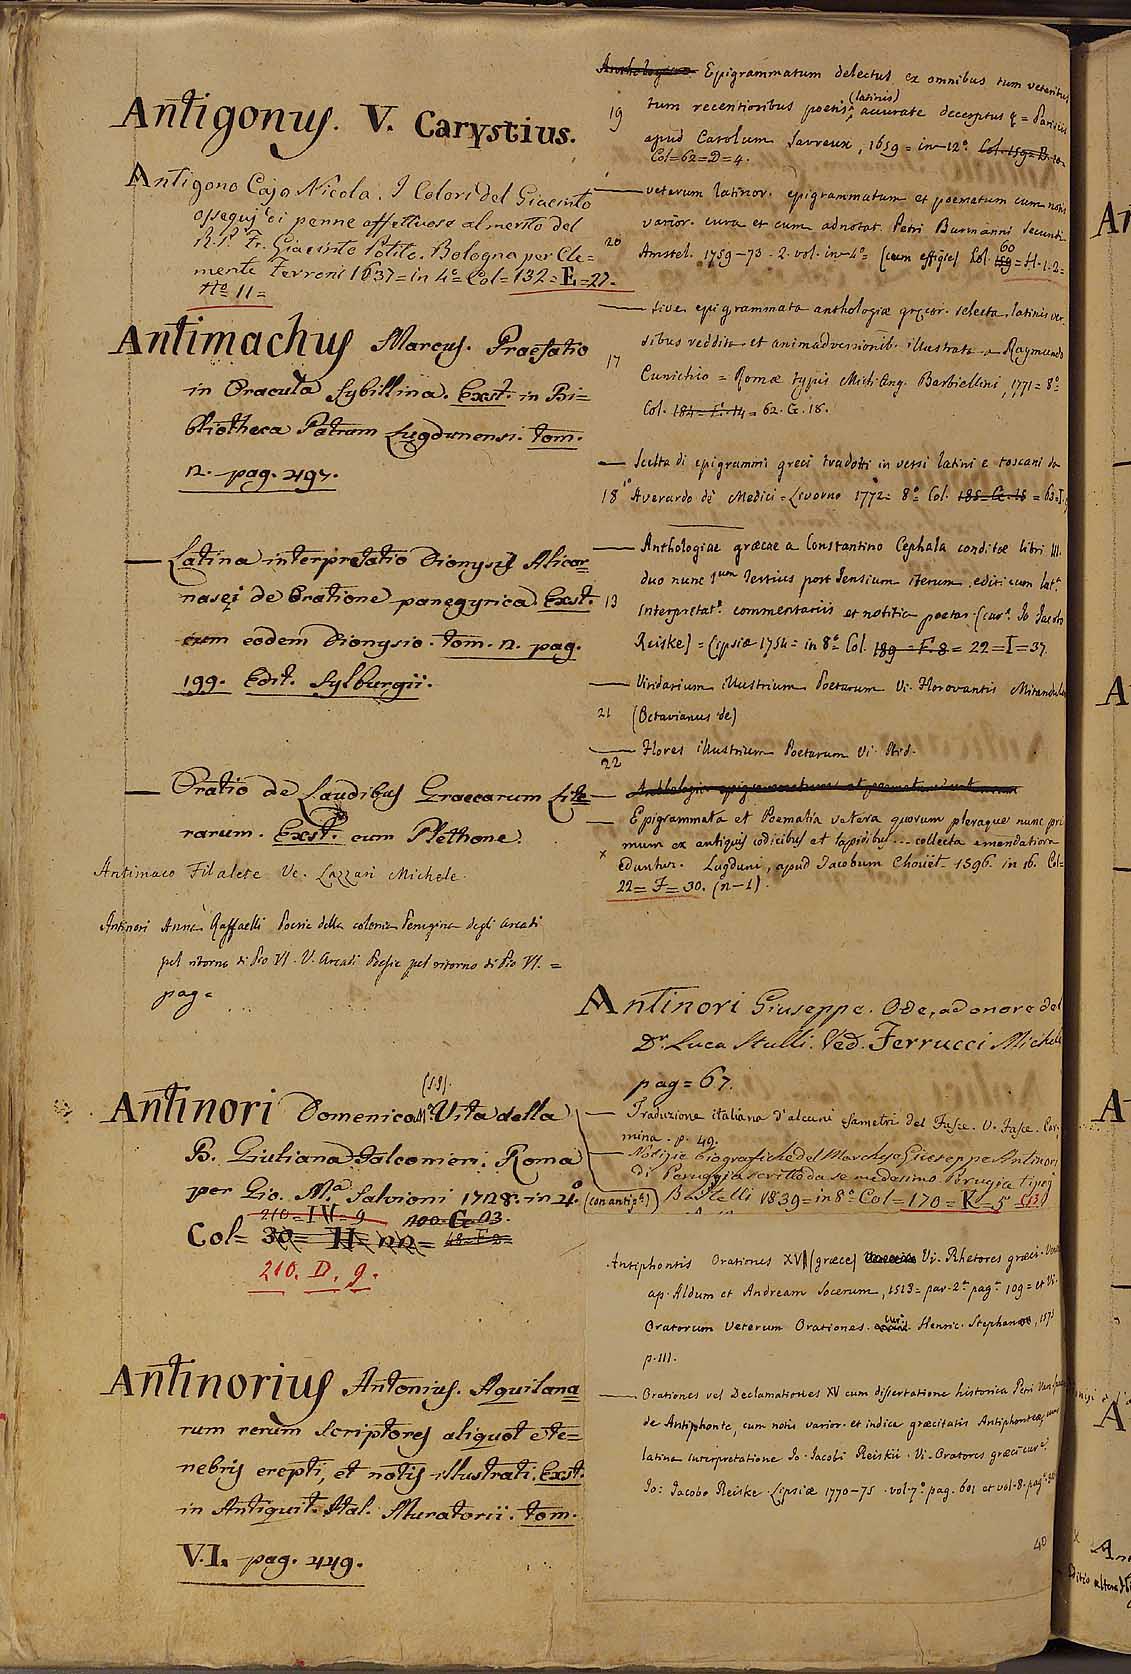 Antigonus. V. Carystius.
Antigono Cajo Nicola. I Colori del Giacinto
ossequj di penne affettuose al merito del
R. P. Fr. Giacinto Potito. Bologna per Cle=
mente Ferroni 1637 = in 4º Col = 132 = E = 27.
Nº 11 =
Antimachus Marcus. Praefatio
in Oracula Sybillina. Exst. in Bi=
bliotheca Patrum Lugdunensi. tom.
2. pag. 497.
— Latina interpretatio Dionysij Alicar
nasei de Oratione panegyrica. Exst.
cum eodem Dionysio. tom. 2. pag.
199. Edit. Sylburgii.
— Oratio de Laudibus Graecarum Lite
rarum. Exst. cum Plethone.
Antimaco Filalete Ve. Lazzari Michele.
Antinori Anna Raffaelli Poesie della colonia Perugina degli Arcadi
pel ritorno di Pio VI. V. Arcadi Poesie pel ritorno di Pio VI. =
pag =
(S.J.)
Antinori Domenico Mª Vita della
B. Giuliana Falconieri. Roma
per Gio. Mª Salvioni 1728. in 4º (con antipª)
210 = IV = 9 200 G. 03.
Col= 30 = II = 22 = 48 = F 2 =
210. D. 9.
Antinorius Antonius. Aquilana
rum rerum Scriptores aliquot e te=
nebris erepti, et notis illustrati. Exst.
in Antiquit. Ital. Muratorii. tom.
V.I. pag. 449.
Anthologia Epigrammatum delectus ex omnibus tum veteribus
19 tum recentioribus poetis (latinis) accurate decerptus &c = Parisiis
apud Carolum Savreux, 1659 = in-12º Col. 159 = B. 10
Col = 62 = D = 4.
— veterum latinor. epigrammatum et poematum cum notis
varior. cura et cum adnotat. Petri Burmanni Secundi
20 Amstel. 1759-73. 2. vol. in-4º (cum effigie) Col. 159 60 = H. 1. 2 =
— sive epigrammata anthologiae græcor. selecta latinis ver
sibus reddita et animadversionib. illustrata a Raymundo
17 Cunichio = Romæ typis Mich. Ang. Barbiellini, 1771 = 8º
Col. 184 = F. 14 = 62. G. 18.
— Scelta di epigrammi greci tradotti in versi latini e toscani da
18 Averardo de Medici = Livorno 1772 = 8º Col. 185 = G. 18 = 63. I. 9
— Anthologiae græcae a Constantino Cephala conditae libri III.
duo nunc 1um tertius post Jensium iterum editi cum latª
13 interpretatº commentariis et notitia poetar. (curª Jo Jacobi
Reiske) = Lipsiæ 1754 = in 8º Col. 189 = F. 8 = 22 = I = 37.
— Viridarium illustrium Poetarum Vi. Florovantis Mirandula
21 (Octavianus de)
— Flores illustrium Poetarum Vi. Ibid.
22
— Anthologia epigrammatum et poematum vet
— Epigrammata et Poematia vetera quorum pleraque nunc pri
mum ex antiquis codicibus et lapidibus... collecta emendatiora
x eduntur. Lugduni, apud Jacobum Chouët. 1596. in 16. Col =
22 = F = 30. (n-1).
Antinori Giuseppe. Ode, ad onore del
Dr. Luca Stulli. Ved. Ferrucci Michele
pag = 67.
— Traduzione italiana d'alcuni esametri del Fusc. V. Fusc. Car
mina. p. 49.
— Notizie biografiche del Marchese Giuseppe Antinori
di Perugia scritte da se medesimo. Perugia tipog
Bartelli 1839 = in 8º Col = 170 = K = 5 (13)
Antiphontis Orationes XVI (græce) Vi. Rhetores græci. Venet
ap. Aldum et Andream Socerum, 1513 = par. 2ª pagª 109 = et Vi.
Oratorum Veterum Orationes. Henric. Stephani, 1575
p. 111.
— Orationes vel Declamationes XV cum dissertatione historica Petri Van
de Antiphonte, cum notis varior. et indice græcitatis Antiphonteæ, cum
latina interpretatione Jo. Jacobi Reiskii. Vi. Oratores græci curª
Jo: Jacobo Reiske. Lipsiæ 1770-75. vol. 7º pag. 601 et vol. 8. pagª
40